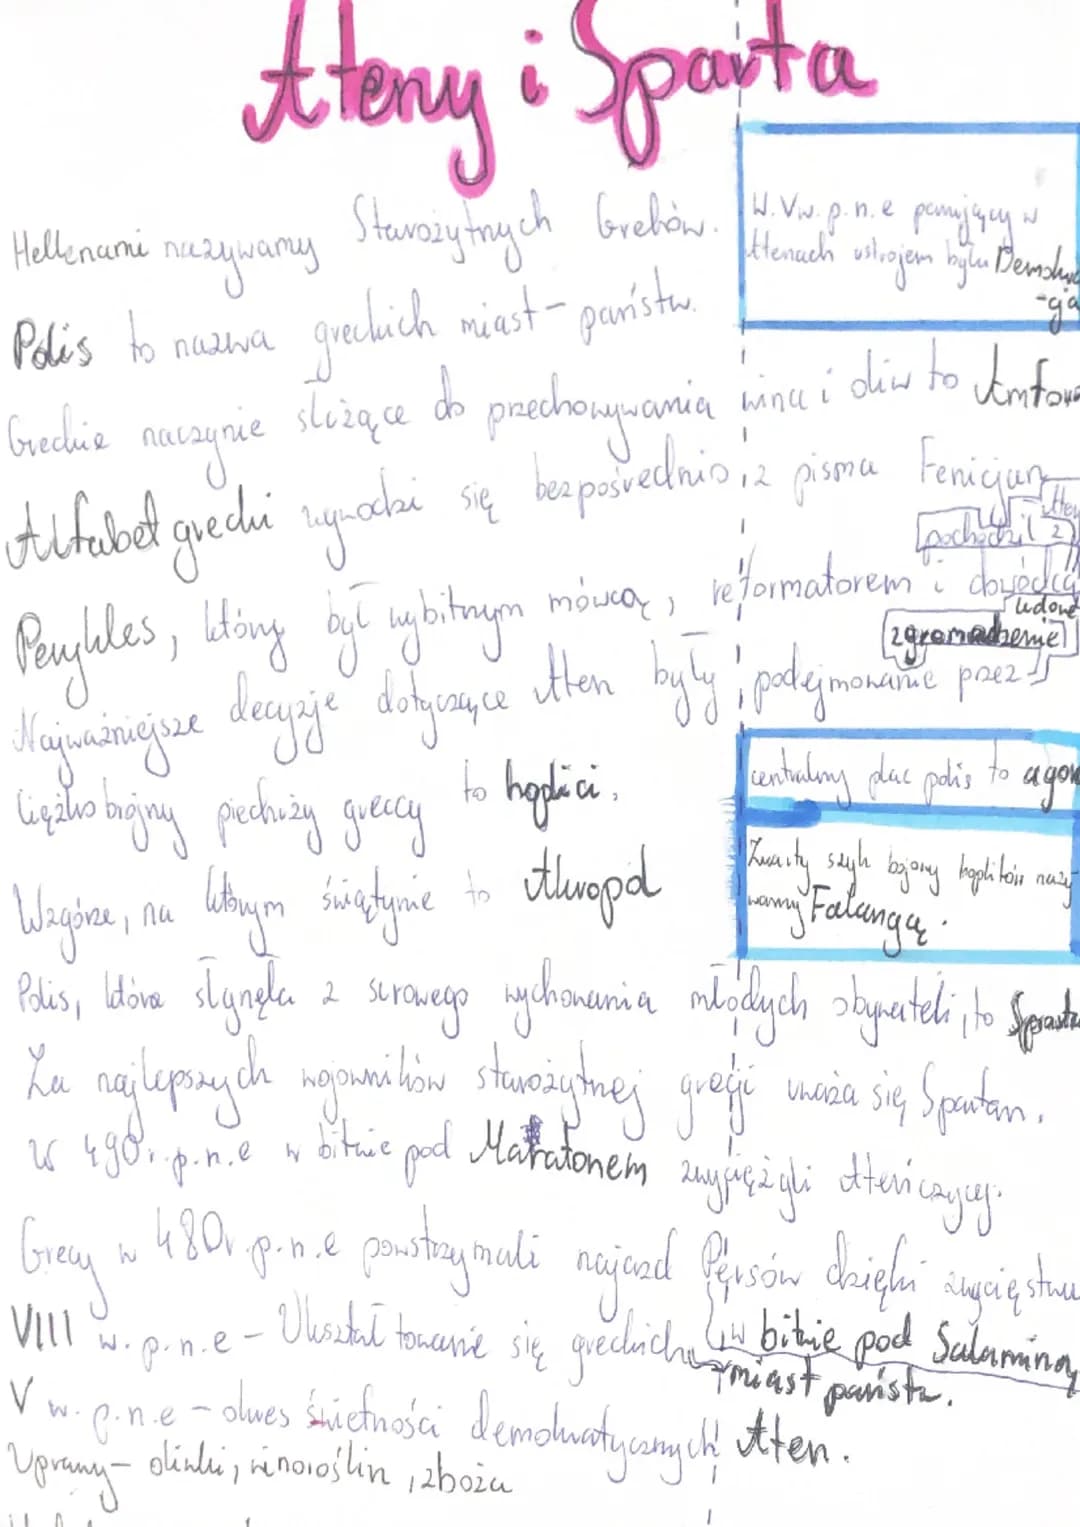 Ateny i Sparta
Hellenami nazywamy Starożytnych Greków.
W. V w. p.n.e panujący w
Atenach ustrojem była Demokra
-cja
Polis to nazwa greckich miast-państw.
Greckie naczynie służące do przechowywania wina i oliw to Amfora
Alfabet grecki wywodzi się bezpośrednio z pisma Fenicjan
pochodził z Aten
Perykles, który był wybitnym mówcą, reformatorem i dowódcą
ludowe
zgromadzenie
Najważniejsze decyzje dotyczące Aten były podejmowanie przez
Ciężko brojny piechuży greccy to hoplici.
centralny plac polis to agora
Wzgórze, na którym świątynie to Akropol
Zwarty szyk bojowy hoplitów nazy
wamy Falangą.
Polis, która słynęła z surowego wychowania młodych obywateli, to Sparta
Za najlepszych wojowników starożytnej grecji uważa się Spartan.
W 490r. p.n.e w bitwie pod Maratonem zwyciężyli Ateńczycy.
Grecy w 480r. p.n.e powstrzymali najazd Persów dzięki zwycięstwu
w bitwie pod Salaminą
VIII w. p.n.e - Ukształtowanie się greckich
miast państw.
V w. p.n.e - okres świetności demokratycznych Aten.
Uprawy - oliwki, winoroślin, zboża